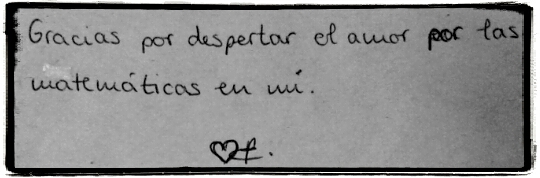 Gracias por despertar el amor por las
matemáticas en mí.